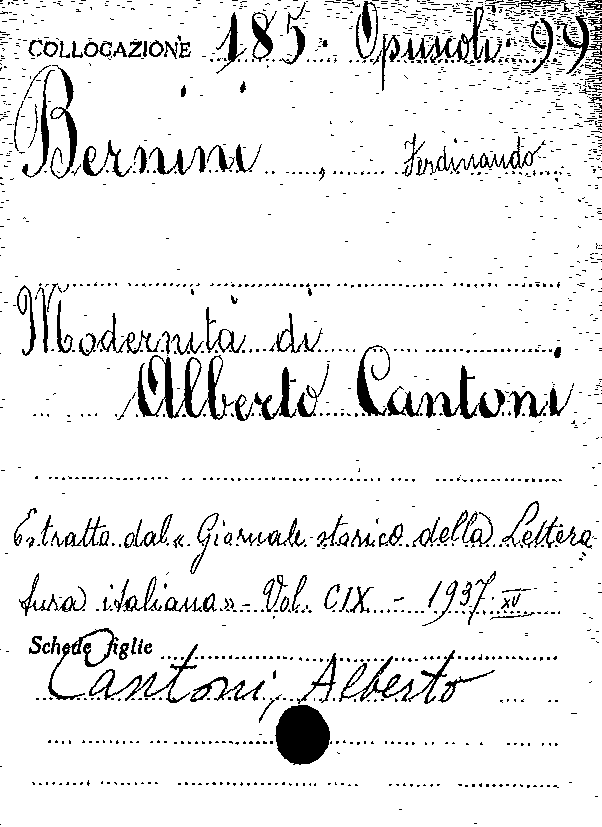 COLLOCAZIONE 185. Opuscoli. 99
Bernini, Ferdinando
Modernità di
Alberto Cantoni
Estratto dal « Giornale storico della Lettera
tura italiana» - Vol. CIX - 1937. XV
Schede figlie
Cantoni, Alberto